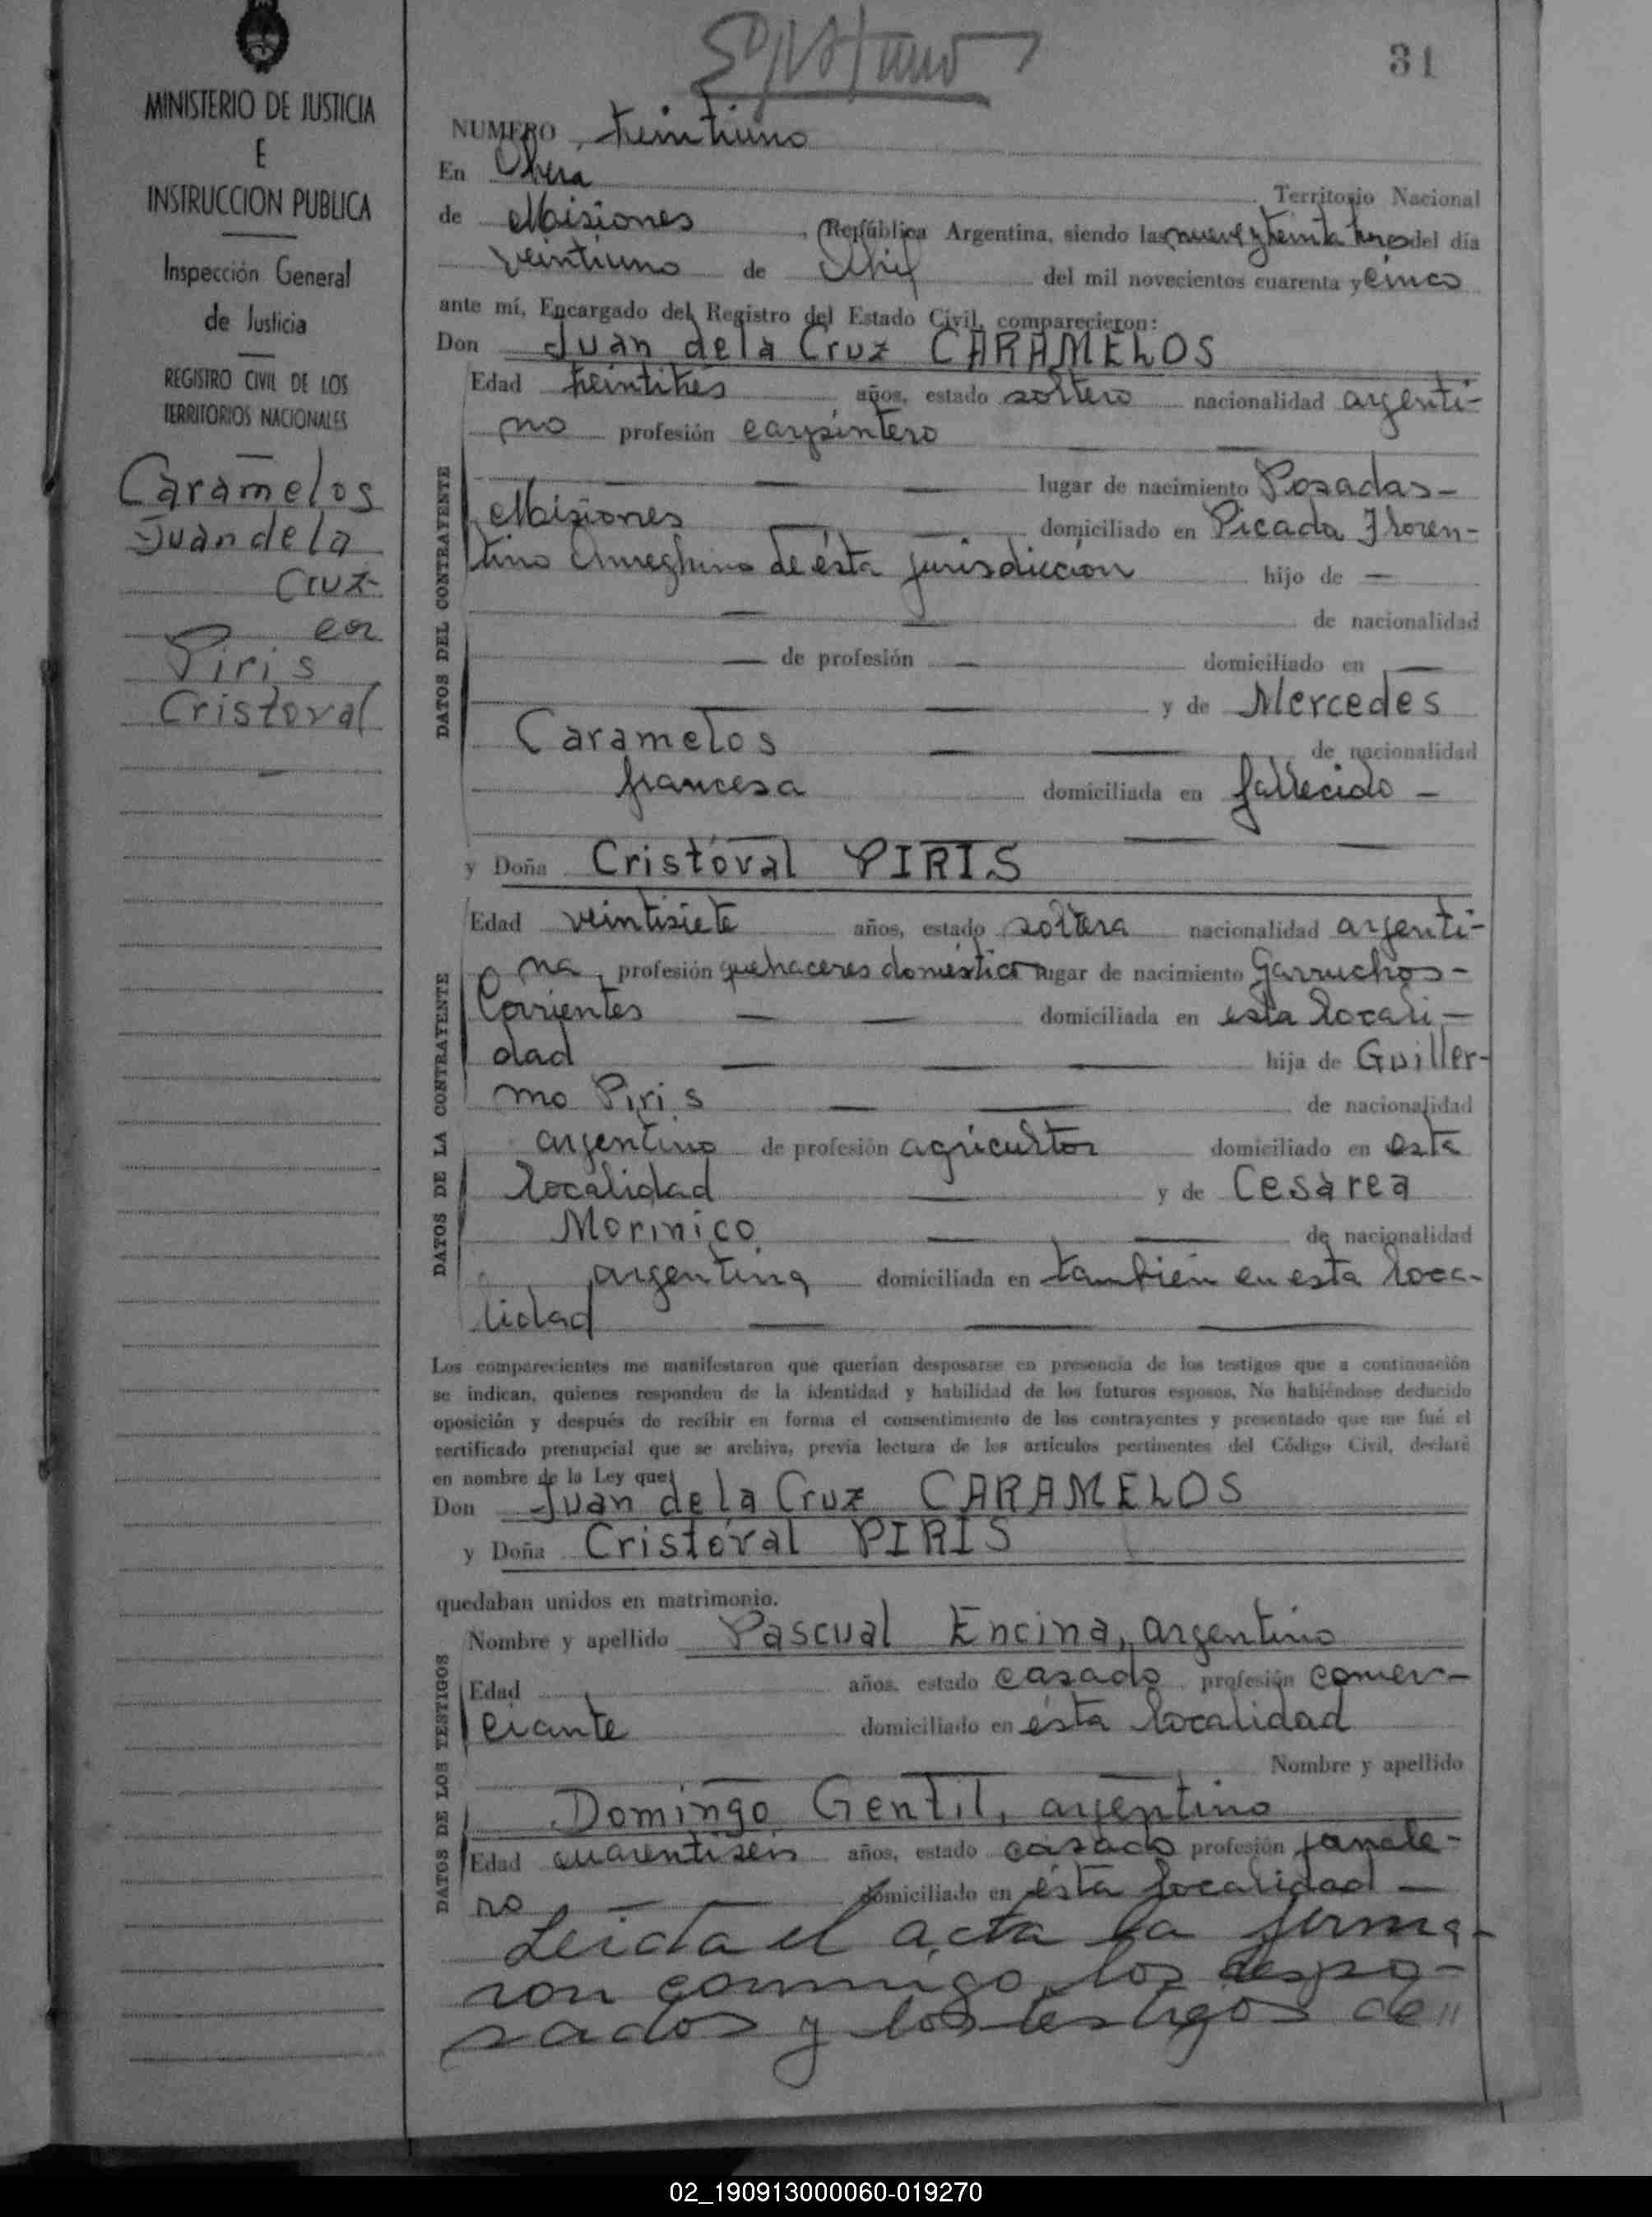 31
MINISTERIO DE JUSTICIA
E
INSTRUCCION PUBLICA
Inspección General
de Justicia
REGISTRO CIVIL DE LOS
TERRITORIOS NACIONALES
Caramelos
Juan de la
Cruz
con
Piris
Cristoval
NUMERO treintiuno
En Oberá Territorio Nacional
de Misiones, República Argentina, siendo las nueve y treinta horas del día
veintiuno de Abril del mil novecientos cuarenta y cinco
ante mí, Encargado del Registro del Estado Civil, comparecieron:
Don Juan de la Cruz CARAMELOS
DATOS DEL CONTRAYENTE
Edad treintitrés años, estado soltero nacionalidad argenti-
no profesión carpintero
lugar de nacimiento Posadas-
Misiones domiciliado en Picada Floren-
tino Ameghino de ésta jurisdicción hijo de —
— de nacionalidad
— de profesión — domiciliado en —
— y de Mercedes
Caramelos — de nacionalidad
francesa domiciliada en fallecido —
y Doña Cristóval PIRIS
DATOS DE LA CONTRAYENTE
Edad veintisiete años, estado soltera nacionalidad argenti-
na, profesión quehaceres doméstico lugar de nacimiento Garruchos-
Corrientes — domiciliada en esta locali-
dad — hija de Guiller-
mo Piris — de nacionalidad
argentino de profesión agricultor domiciliado en esta
localidad — y de Cesárea
Morinico — de nacionalidad
argentina domiciliada en también en esta loca-
lidad —
Los comparecientes me manifestaron que querían desposarse en presencia de los testigos que a continuación
se indican, quienes responden de la identidad y habilidad de los futuros esposos. No habiéndose deducido
oposición y después de recibir en forma el consentimiento de los contrayentes y presentado que me fué el
certificado prenupcial que se archiva, previa lectura de los artículos pertinentes del Código Civil, declaré
en nombre de la Ley que:
Don Juan de la Cruz CARAMELOS
y Doña Cristóval PIRIS
quedaban unidos en matrimonio.
DATOS DE LOS TESTIGOS
Nombre y apellido Pascual Encina, argentino
Edad años, estado casado profesión comer-
ciante domiciliado en ésta localidad
Nombre y apellido
Domingo Gentil, argentino
Edad cuarentiseis años, estado casado profesión
ro — domiciliado en ésta localidad —
Leida el acta la firma-
ron conmigo, los despo-
sados y los testigos de"
02_190913000060-019270